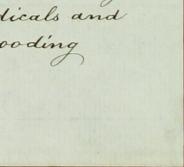 dicals and
ooding